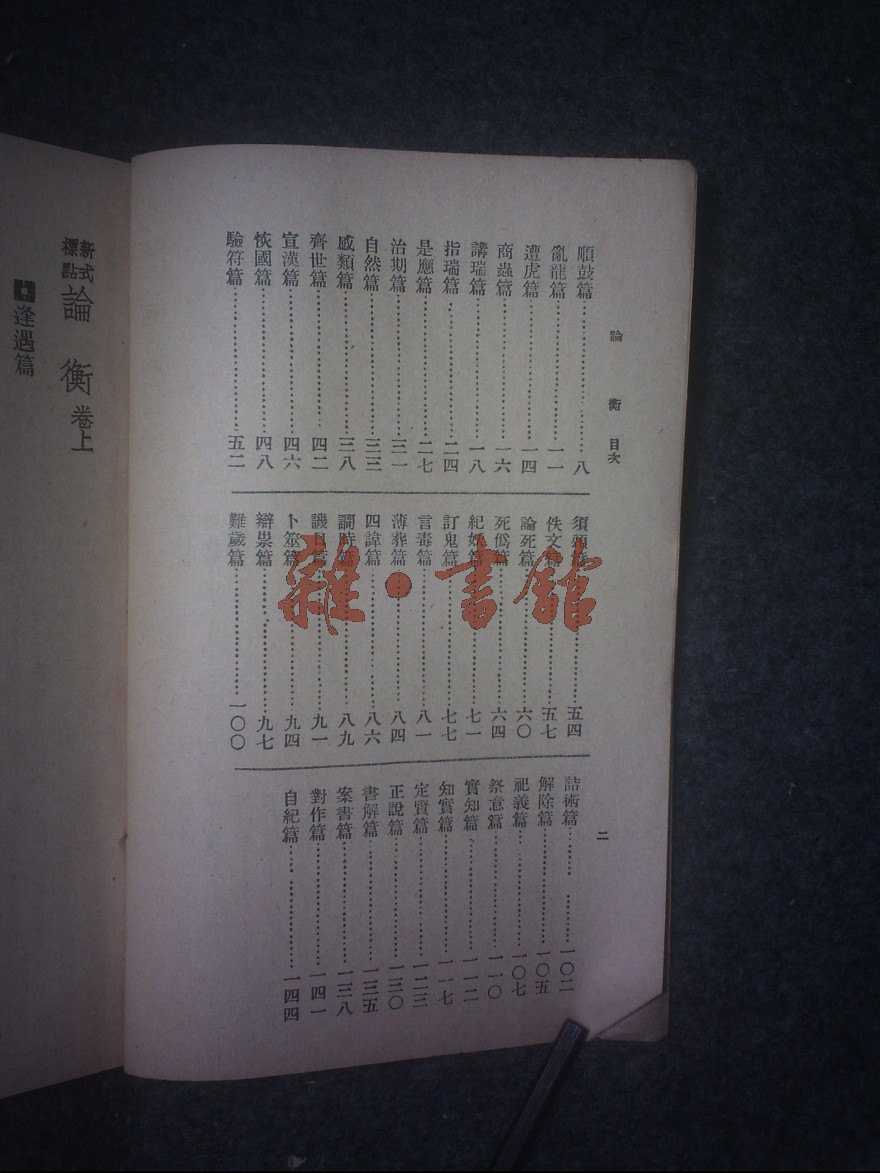 論衡 目次
順鼓篇……八
亂龍篇……一一
遭虎篇……一四
商蟲篇……一六
講瑞篇……一八
指瑞篇……二四
是應篇……二七
治期篇……三一
自然篇……三三
感類篇……三八
齊世篇……四二
宣漢篇……四六
恢國篇……四八
驗符篇……五二
須頌篇……五四
佚文篇……五七
論死篇……六〇
死僞篇……六四
紀妖篇……七一
訂鬼篇……七七
言毒篇……八一
薄葬篇……八四
四諱篇……八六
譋時篇……八九
譏日篇……九一
卜筮篇……九四
辯祟篇……九七
難歲篇……一〇〇
詰術篇……一〇二
解除篇……一〇五
祀義篇……一〇七
祭意篇……一一〇
實知篇……一一二
知實篇……一一七
定賢篇……一二三
正說篇……一三〇
書解篇……一三五
案書篇……一三八
對作篇……一四一
自紀篇……一四四
二
新式標點 論衡 卷上
逢遇篇
雜·書館